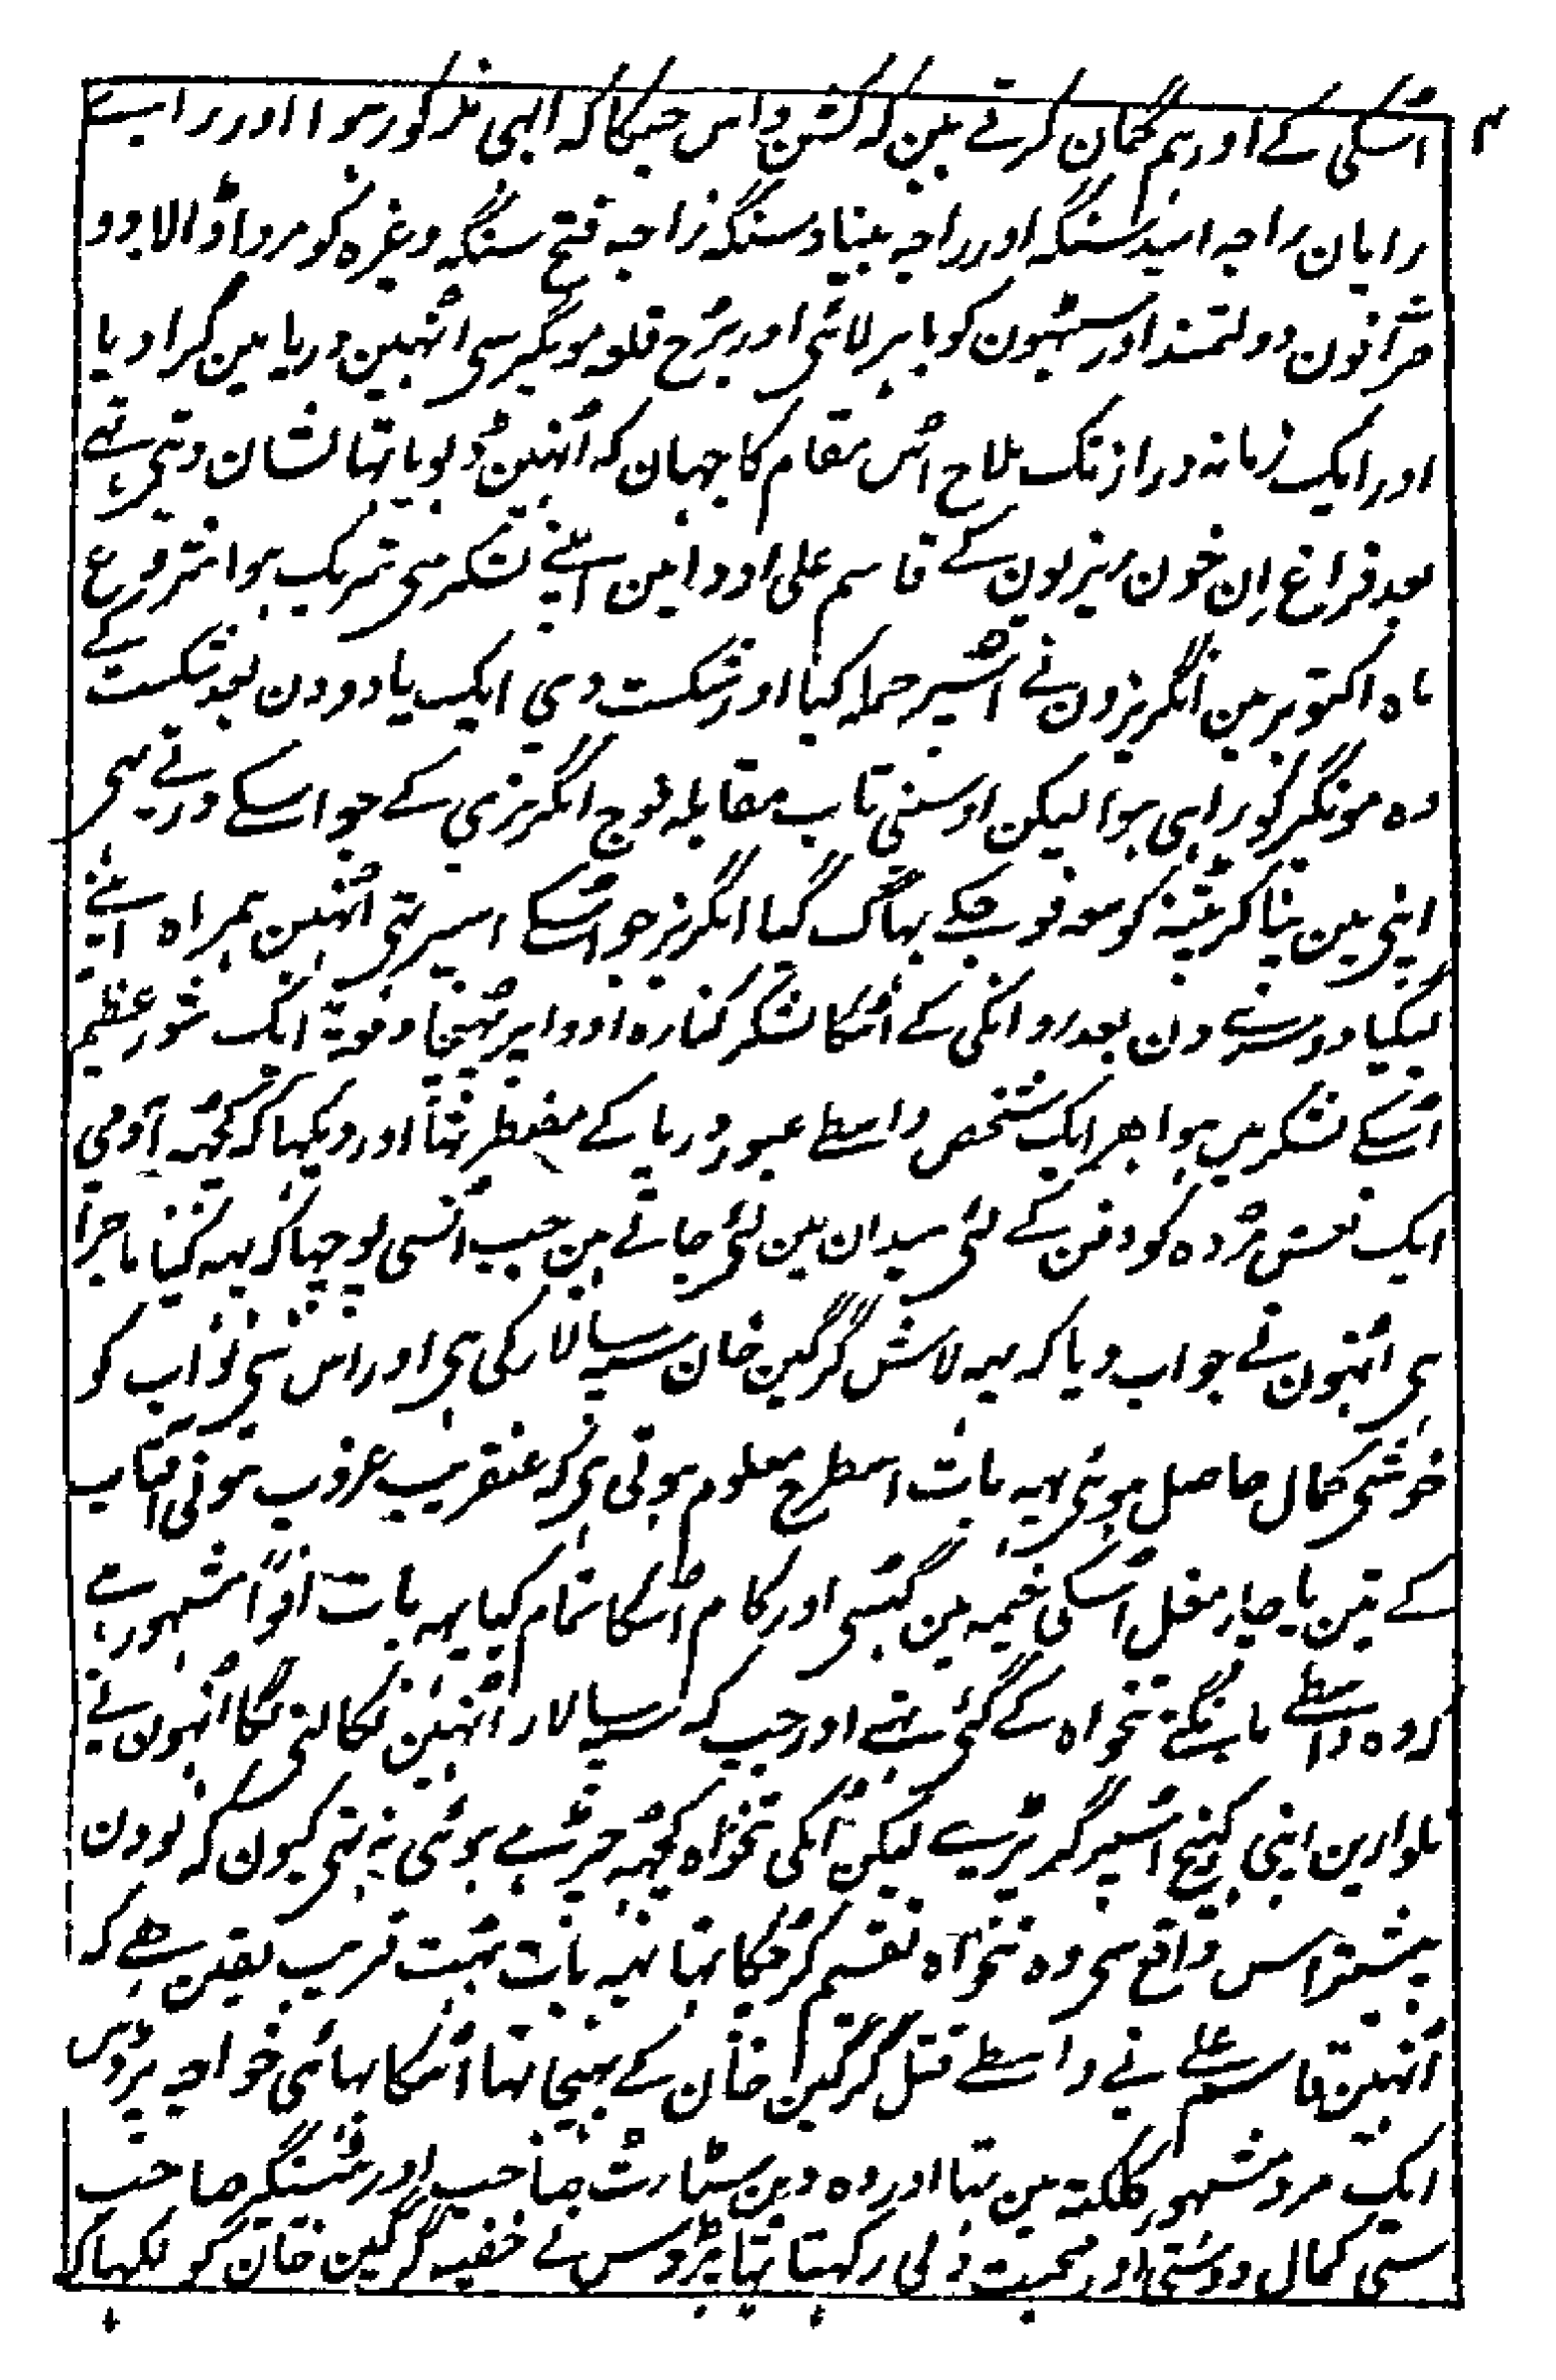 ۴
اسکی کے اور ہم گمان کرتے ہین کہ کشن داس جسکا کہ ابہی مذکور ہوا اور راے
رایان راجہ امیدسنگہ اور راجہ بنیادسنگہ راجہ فتح سنگہ وغیرہ کو مرواڈالا دو
صرافون دولتمند اور سیٹہون کو باہر لائی اور برج قلعہ مونگیر سی انہین دریا مین گرا دیا
اور ایک زمانہ دراز تک ملاح اس مقام کا جہان کہ انہین ڈبویا تہا نشان دیتی تہے
بعد فراغ اِن خون ریزیون کے قاسم علی اودوا مین اپنے لشکر سی شریک ہوا شروع
ماہ اکتوبر مین انگریزون نے اسپر حملہ کیا اور شکست دی ایک یا دو دن بعد شکست کے
وہ مونگیر کو راہی ہوا لیکن اوسنی تاب مقابلہ فوج انگریزی کے جو اسکے درپے تہی
اپنی مین نپا کر پٹنہ کو معہ فوجکے بہاگ گیا انگریز جو اسکے اسیر تہی انہین ہمراہ اپنے
لیگیا دوسرے دن بعد روانگی کے اسکا لشکر کنارہ اودوا پر پہنچا دفعۃً ایک شور عظیم
اسکے لشکر مین ہوا ہر ایک شخص واسطے عبور دریا کے مضطر تہا اور دیکہا کہ کچہہ آدمی
ایک نعش مردہ کو دفن کے لئی میدان مین لئی جاتے ہین جب انسی پوچہا کہ یہہ کیا ماجرا
ہی انہون نے جواب دیا کہ یہہ لاش گرگین خان سپہ سالار کی ہی اور اس سی نواب کو
خوشی کمال حاصل ہوئی یہہ بات اسطرح معلوم ہوتی ہی کہ عنقریب غروب ہونی افتاب
کے تین یا چار مغل اسکی خیمہ مین گہسی اور کام اسکا تمام کیا یہہ بات افواًہ مشہور ہے
کہ وہ واسطے مانگنے تنخواہ کے گئی تہے اور جب کہ سپہ سالار انہین نکالنی لگا انہون نے
تلوارین اپنی کہنچ اسپر گر پڑے لیکن انکی تنخواہ کچہہ چڑہے ہوئی نہ تہی کیون کہ نو دن
پیشتر اس واقع سی وہ تنخواہ تقسیم کرچکا تہا یہہ بات بہت قریب یقین ہے کہ
انہین قاسم علے نے واسطے قتل گرگین خان کے بہیجا تہا اسکا بہائی خواجہ پردوس
ایک مرد مشہور کلکتہ مین تہا اور وہ وین سٹارٹ صاحب اور ہشینگز صاحب
سی کمال دوستی اور محبت دلی رکہتا تہا پردوس نے خفیہ گرگین خان کو لکہا کہ